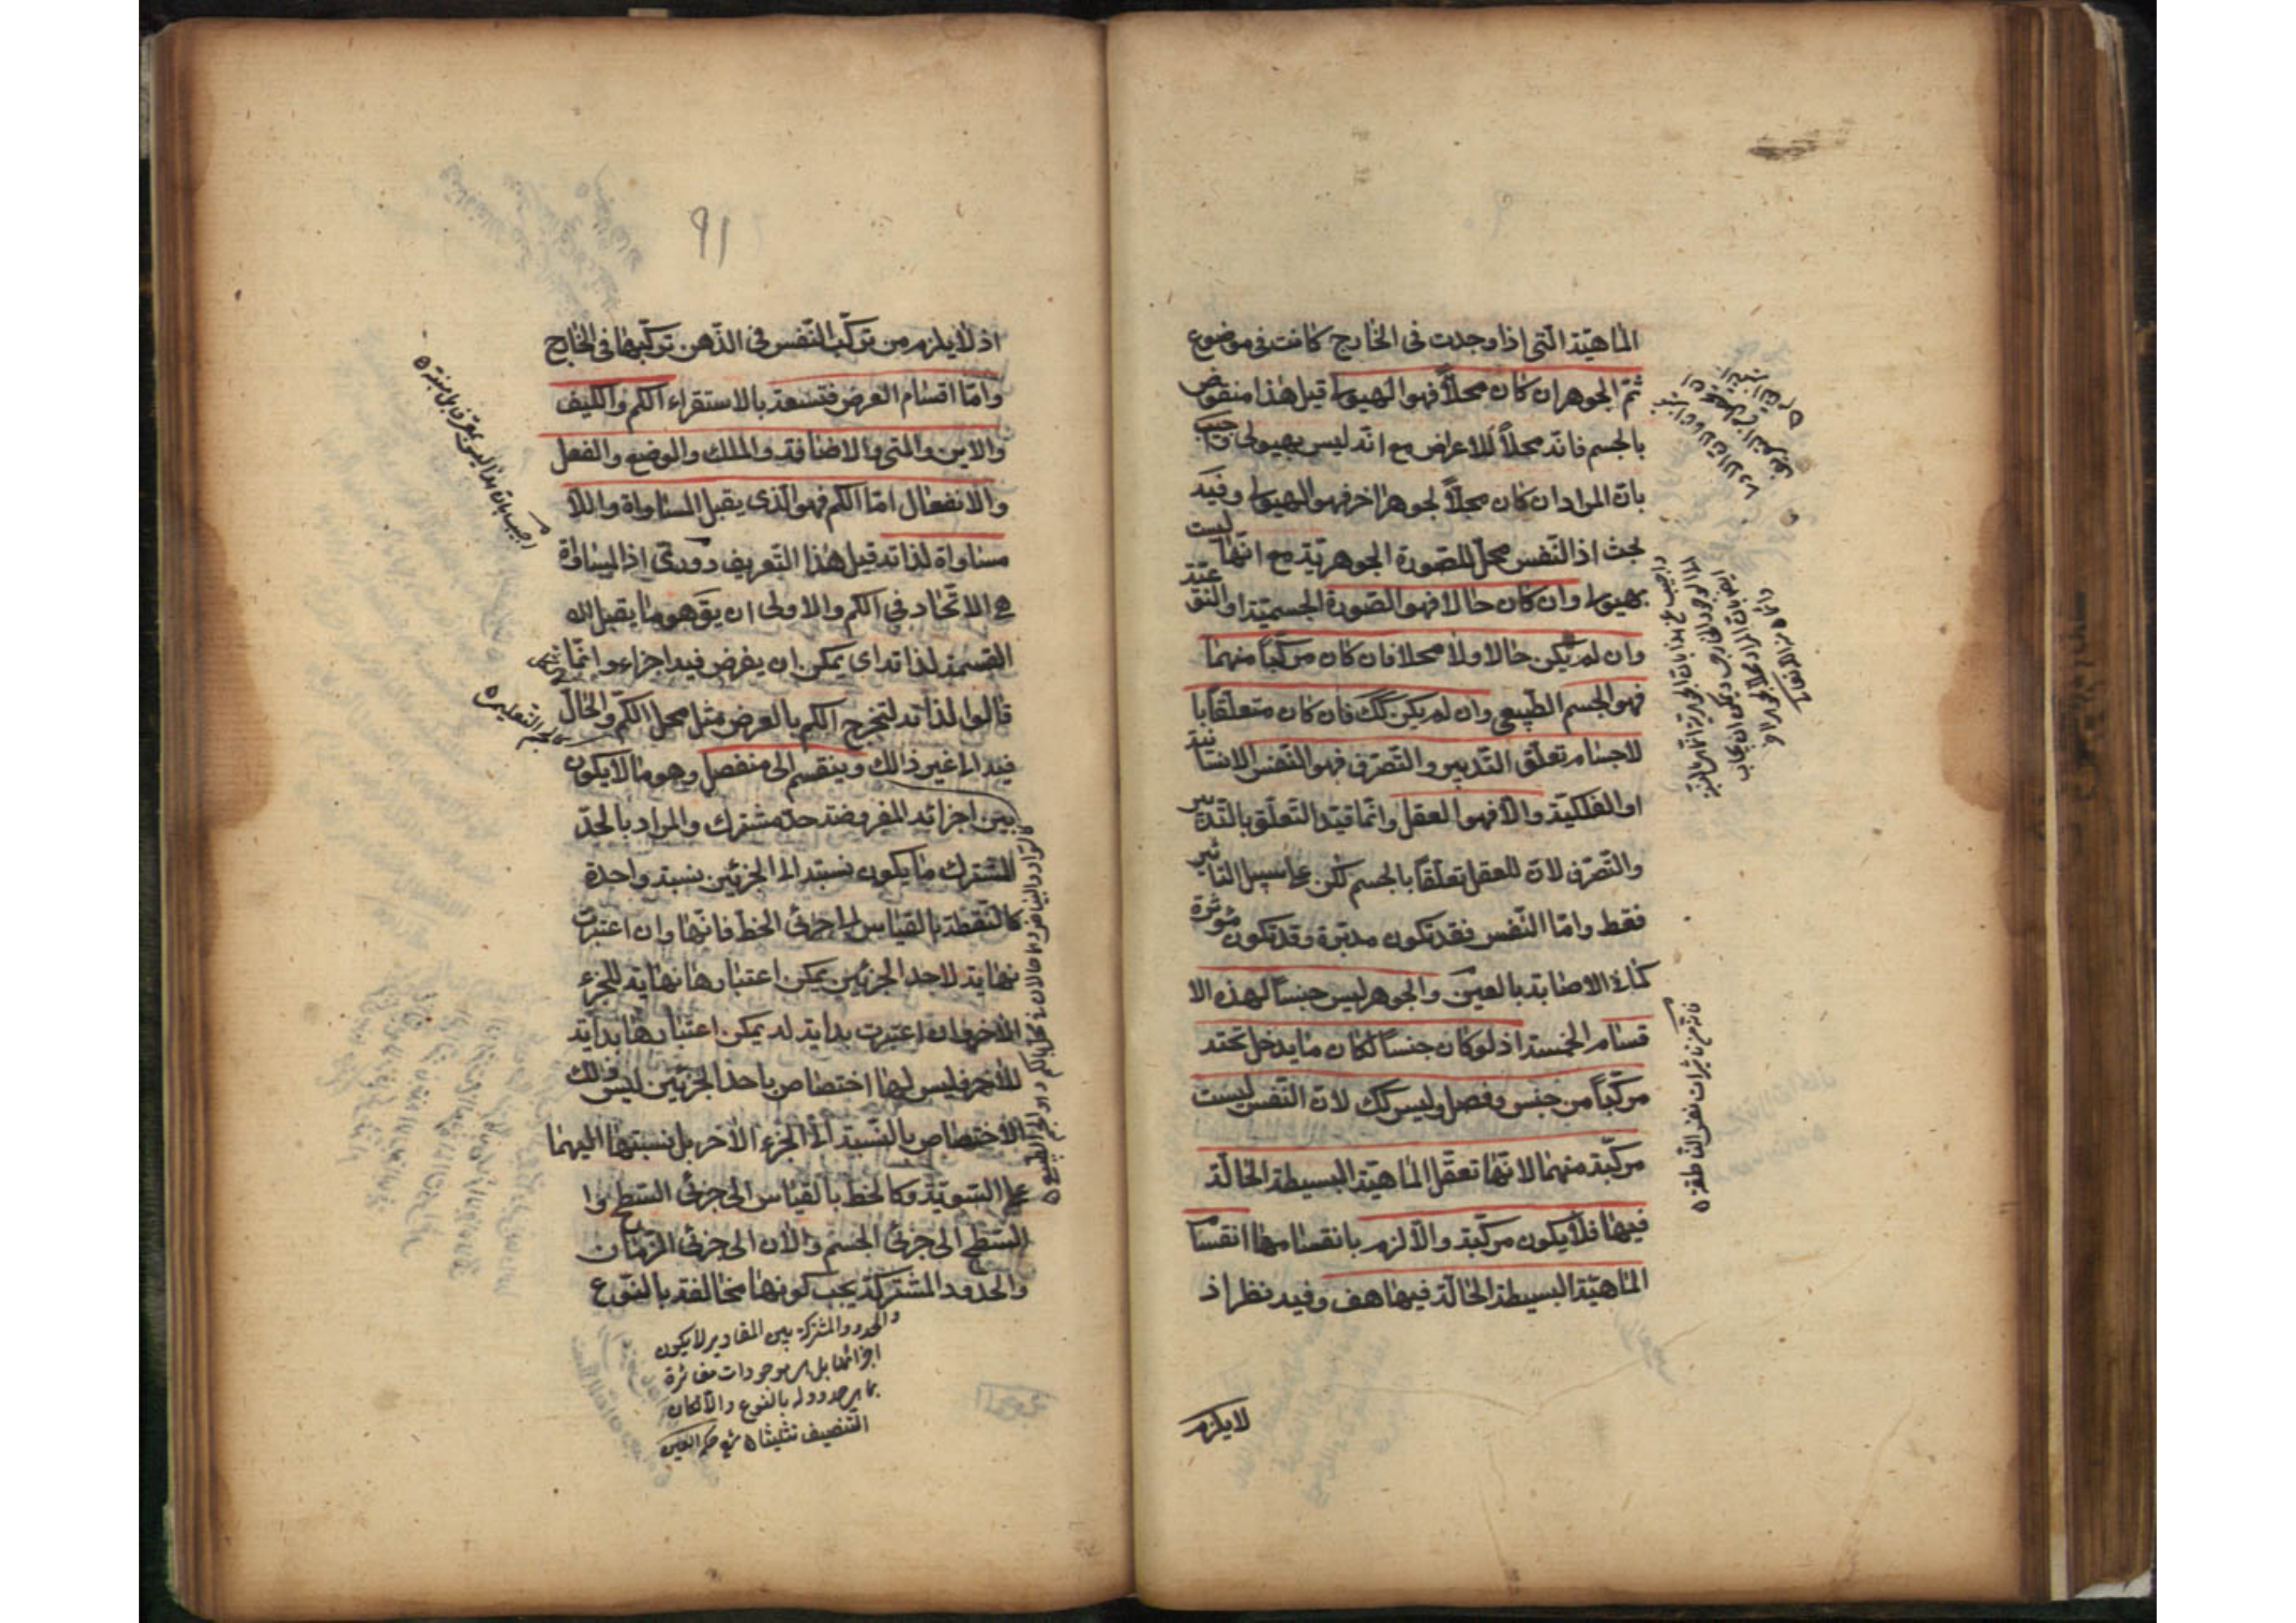 الماهيّة الّتى اذا وجدت فى الخارج كانت فى موضوع
ثمّ الجوهر ان كان محلّاً فهو الهيولى قيل هذا منقوض
بالجسم فانّه محلّاً للاعراض مع انّه ليس بهيولى واجيب
بانّ المراد ان كان محلّاً لجوهر اخر فهو الهيولى وفيه
بحث اذ النّفس محلّ للصّورة الجوهريّة مع انّها ليست
بهيولى وان كان حالا فهو الصّورة الجسميّة او النّوعيّة
وان لم يكن حالا ولا محلا فان كان مركّباً منهما
فهو الجسم الطّبيعى وان لم يكن كك فان كان متعلّقا با
لاجسام تعلّق التّدبير والتّصرّف فهو النّفس الانسانيّة
او الفلكيّة والّا فهو العقل وانّما قيّد التّعلّق بالتّدبير
والتّصرّف لانّ للعقل تعلّقاً بالجسم لكن على سبيل التأثير
فقط وامّا النّفس فقد تكون مدبّرة وقد تكون مؤثرة
كما فى الاصابة بالعين والجوهر ليس جنساً لهذه الا
قسام الخمسة اذ لو كان جنساً لكان ما يدخل تحته
مركّباً من جنس وفصل وليس كك لانّ النّفس ليست
مركّبة منهما لانّها تعقّل الماهيّة البسيطة الحالّة
فيها فلا يكون مركّبة والّا لزم بانقسامها انقسام
الماهيّة البسيطة الحالّة فيها هف وفيه نظر اذ
لا يلزم
فانّه من تأثيرات نفس النّاطقة
٩١
اذ لا يلزم من تركّب النّفس فى الذّهن تركّبها فى الخارج
وامّا اقسام العرض فتسعة بالاستقراء الكم والكيف
والاين والمتى والاضافة والملك والوضع والفعل
والانفعال امّا الكم فهو الّذى يقبل المساواة واللّا
مساواة لذاته قيل هذا التّعريف دورىّ اذ المساواة
هى الاتّحاد فى الكم والاولى ان يقّ هو ما يقبل
القسمة لذاته اى يمكن ان يفرض فيه اجزاء وانّما
قالوا لذاته لتخرج الكم بالعرض مثل محل الكمّ والحالّ
فيه الى غير ذالك وينقسم الى منفصل وهو ما لا يكون
بين اجزائه المفروضة حدّ مشترك والمراد بالحدّ
المشترك ما يكون نسبته الى الجزئين نسبة واحدة
كالنّقطة بالقياس الى جزئى الخطّ فانّها وان اعتبرت
نهاية لاحد الجزئين يمكن اعتبارها نهاية للجزء
الاخر وان اعتبرت بداية له يمكن اعتبارها بداية
للاخر فليس لها اختصاص باحد الجزئين ليس ذالك
الاختصاص بالنّسبة الى الجزء الاخر بل نسبتها اليهما
على السّويّة وكالخطّ بالقياس الى جزئى السّطح وا
السّطح الى جزئى الجسم والان الى جزئى الزّمان
والحدود المشتركة يجب كونها مخالفة بالنّوع
والحدود المشتركة بين المقادير لا يكون
اجزائها بل هى موجودات مغائرة
بما هى حدود له بالنّوع والّا لكان
التّنصيف تثليثا شرح حكمة العين